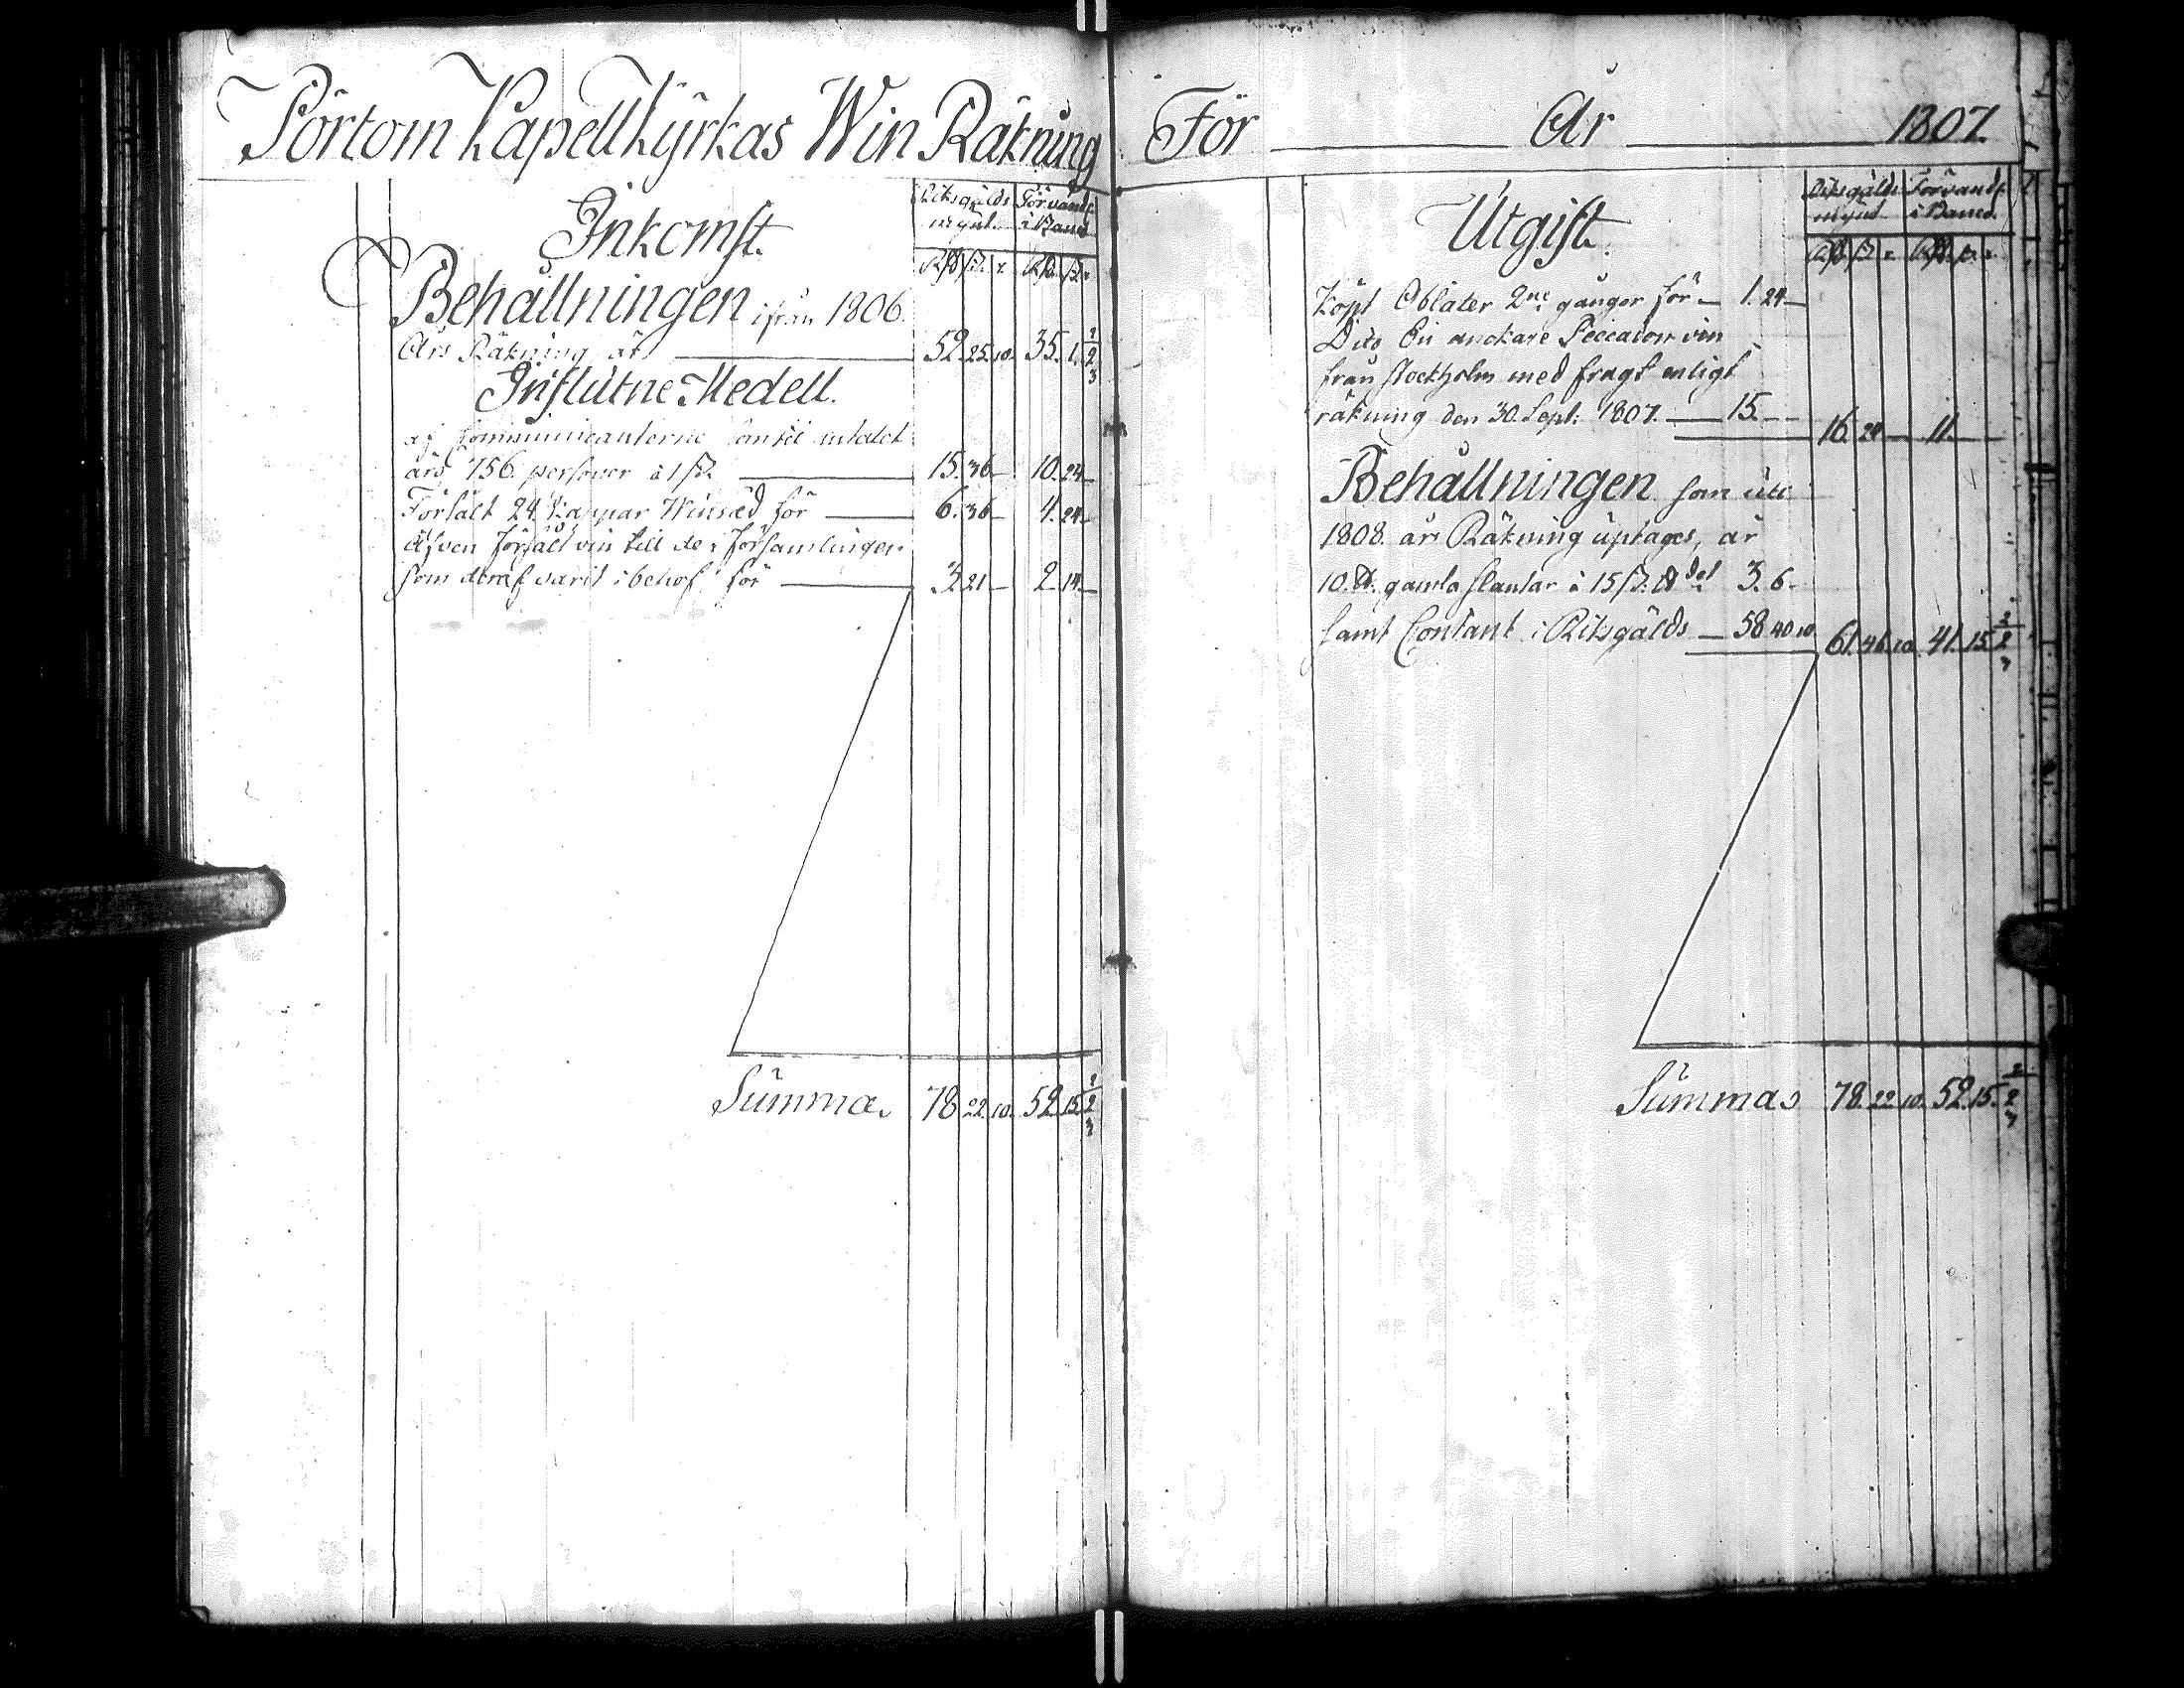 Pörtom Kapell Kyrkas Win Räkning
Inkomst.
Riksgälds Förvandl.
mynt. i Banco
Behållningen ifrån 1806.
Års Räkning är 52. 25. 10. 35. 1. 2 2/3
Influtne Medell.
af Communicanterne som til antalet
äro 756. personer à 1 ß. 15. 36 10. 24
Försålt 24. Kappar Winsæd för 6. 36 4. 24
Äfven försålt vin till de i Församlingen
som deraf varit i behof för 3. 21 2. 14
Summa. 78. 22. 10. 52. 15. 2 2/3
För År 1807.
Utgift.
Riksgälds Förvandl.
mynt. i Banco.
Köpt Oblater 2ne gånger för 1. 24
Dito En anckare Peccatou vin
från Stockholm med fragt enligt
räkning den 30. Sept. 1807. 15.
16. 24 11.
Behållningen som uti
1808. års Räkning uptages, är
10. ℔. gamla slantar à 15 ß. ℔det 3. 6.
samt Contant i Riksgälds 58. 40. 10 61. 46. 10. 41. 15. 2 2/3
Summa 78. 22. 10. 52. 15. 2 2/3